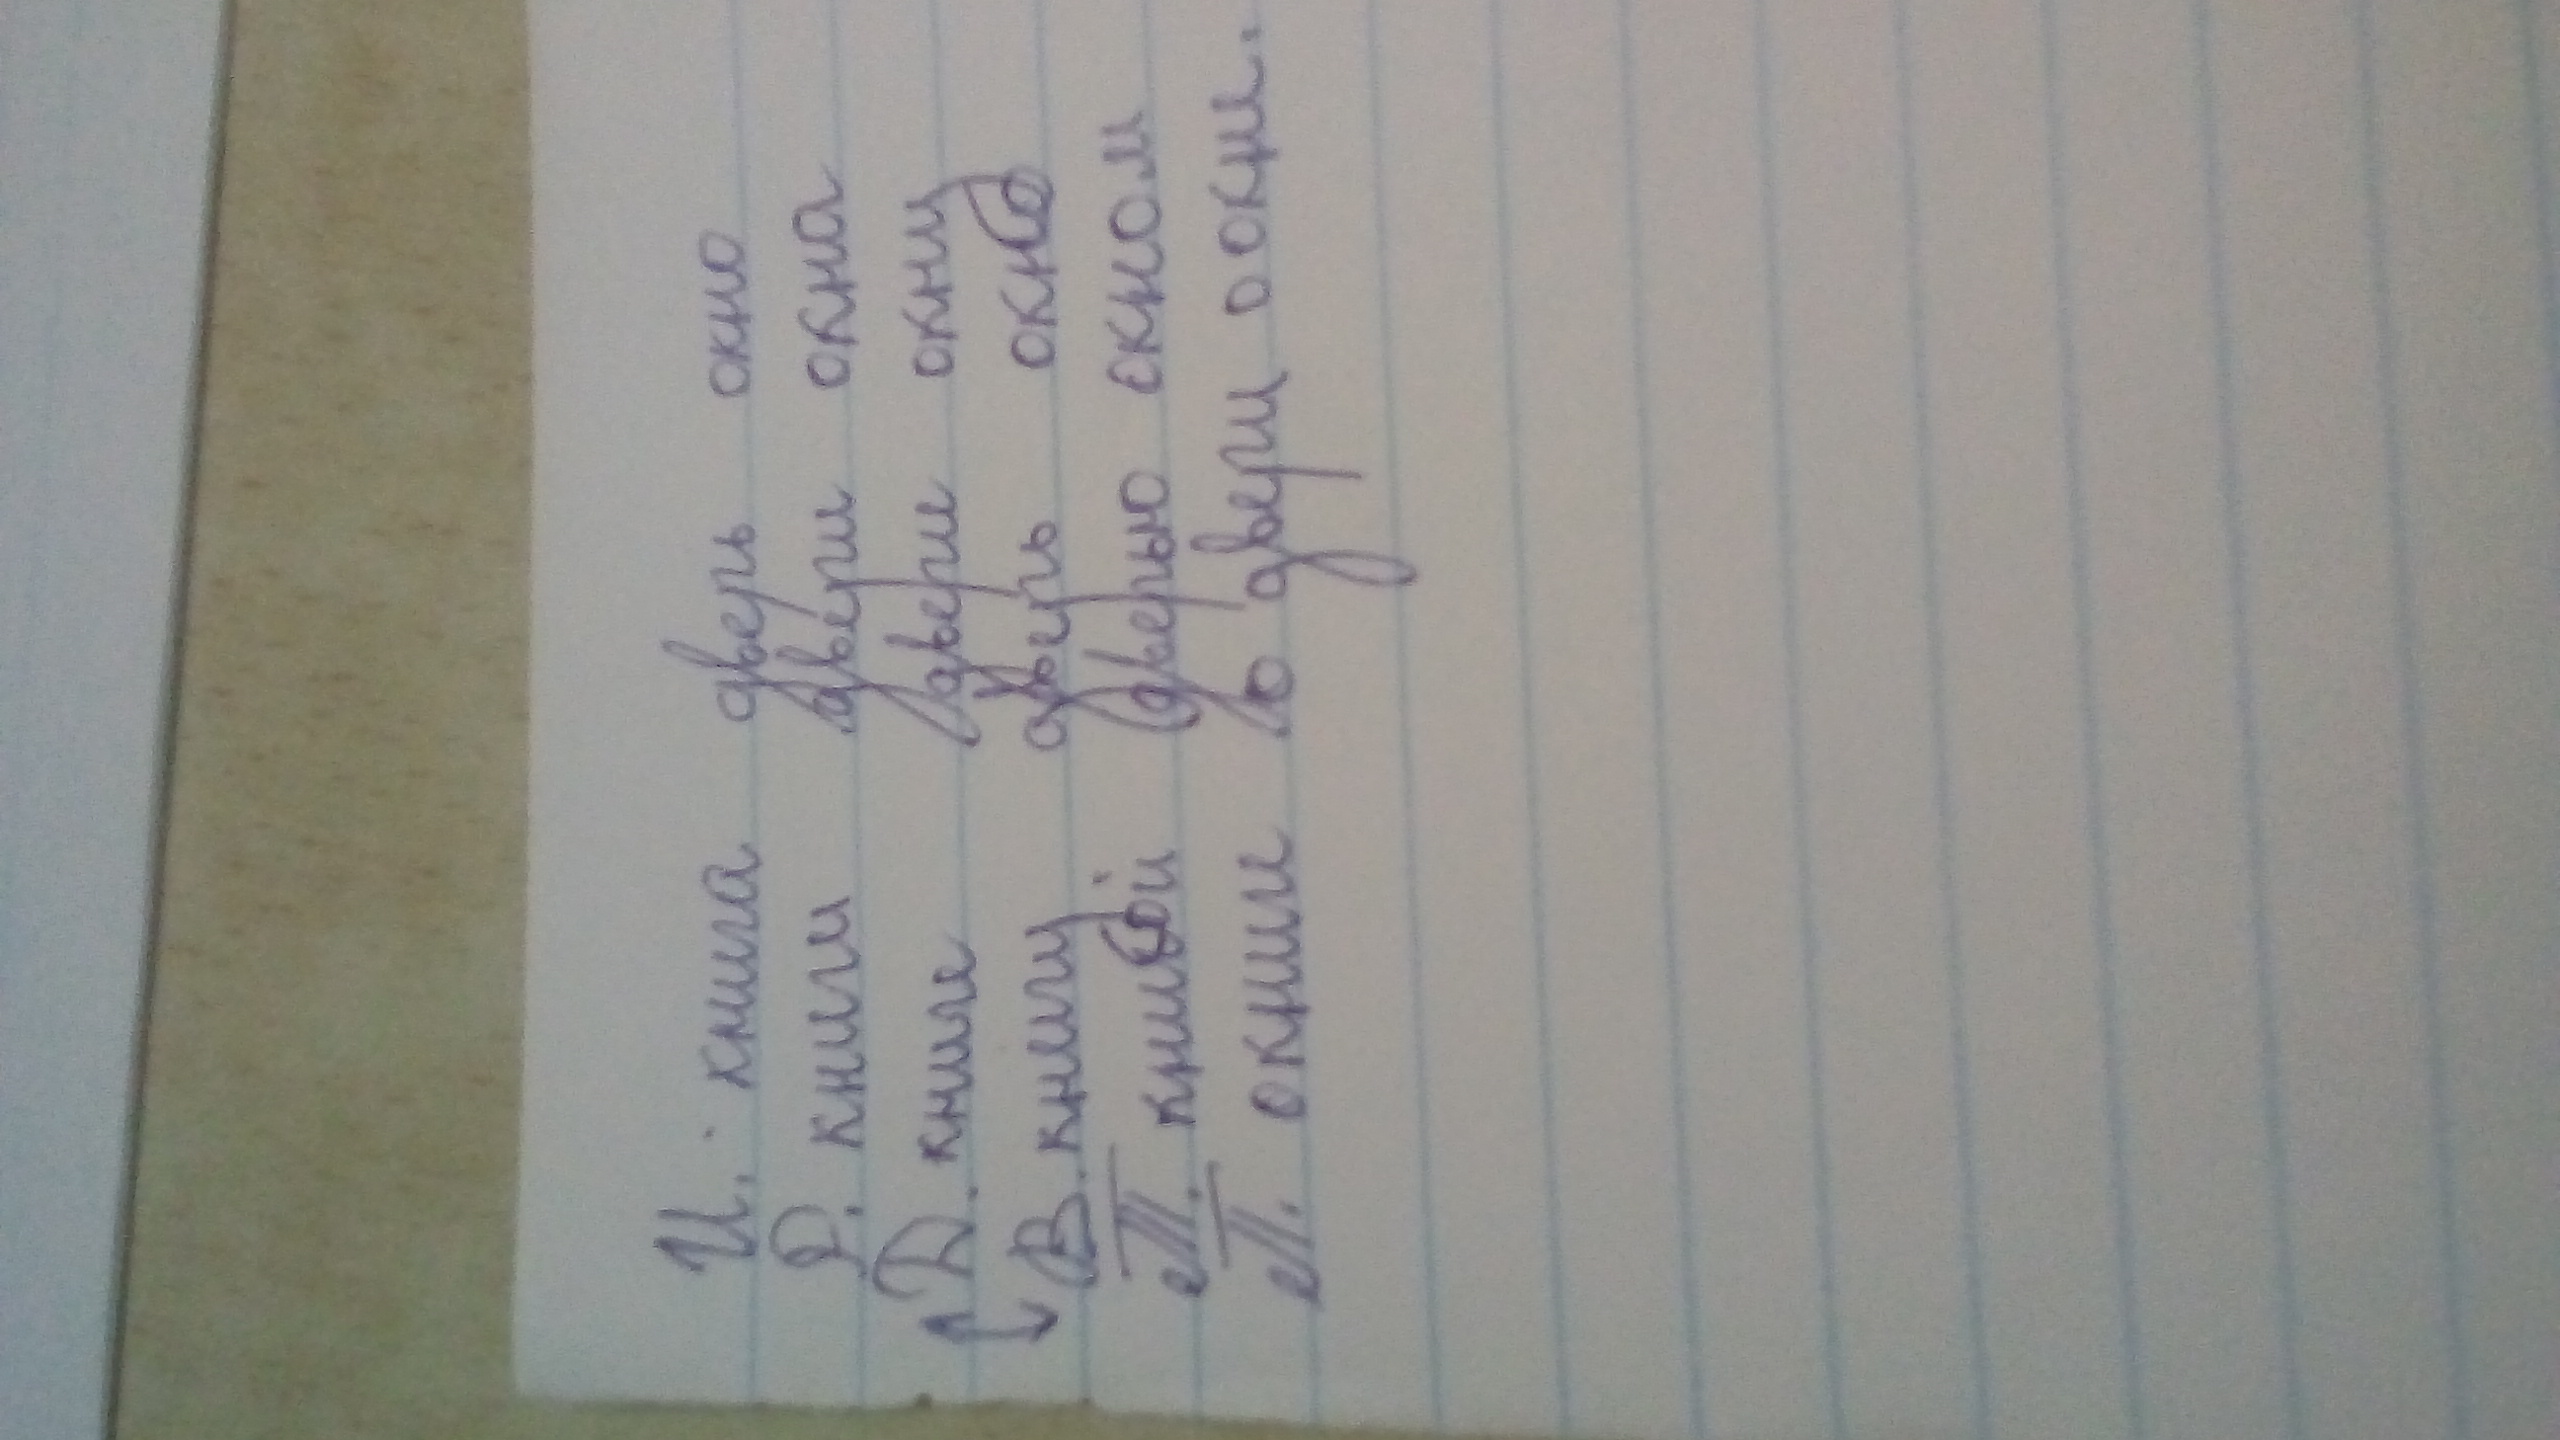 И. книга дверь окно
Р. книги двери окна
Д. книге двери окну
В. книгу дверь окно
Т. книгой дверью окном
П. о книги о двери о окни.